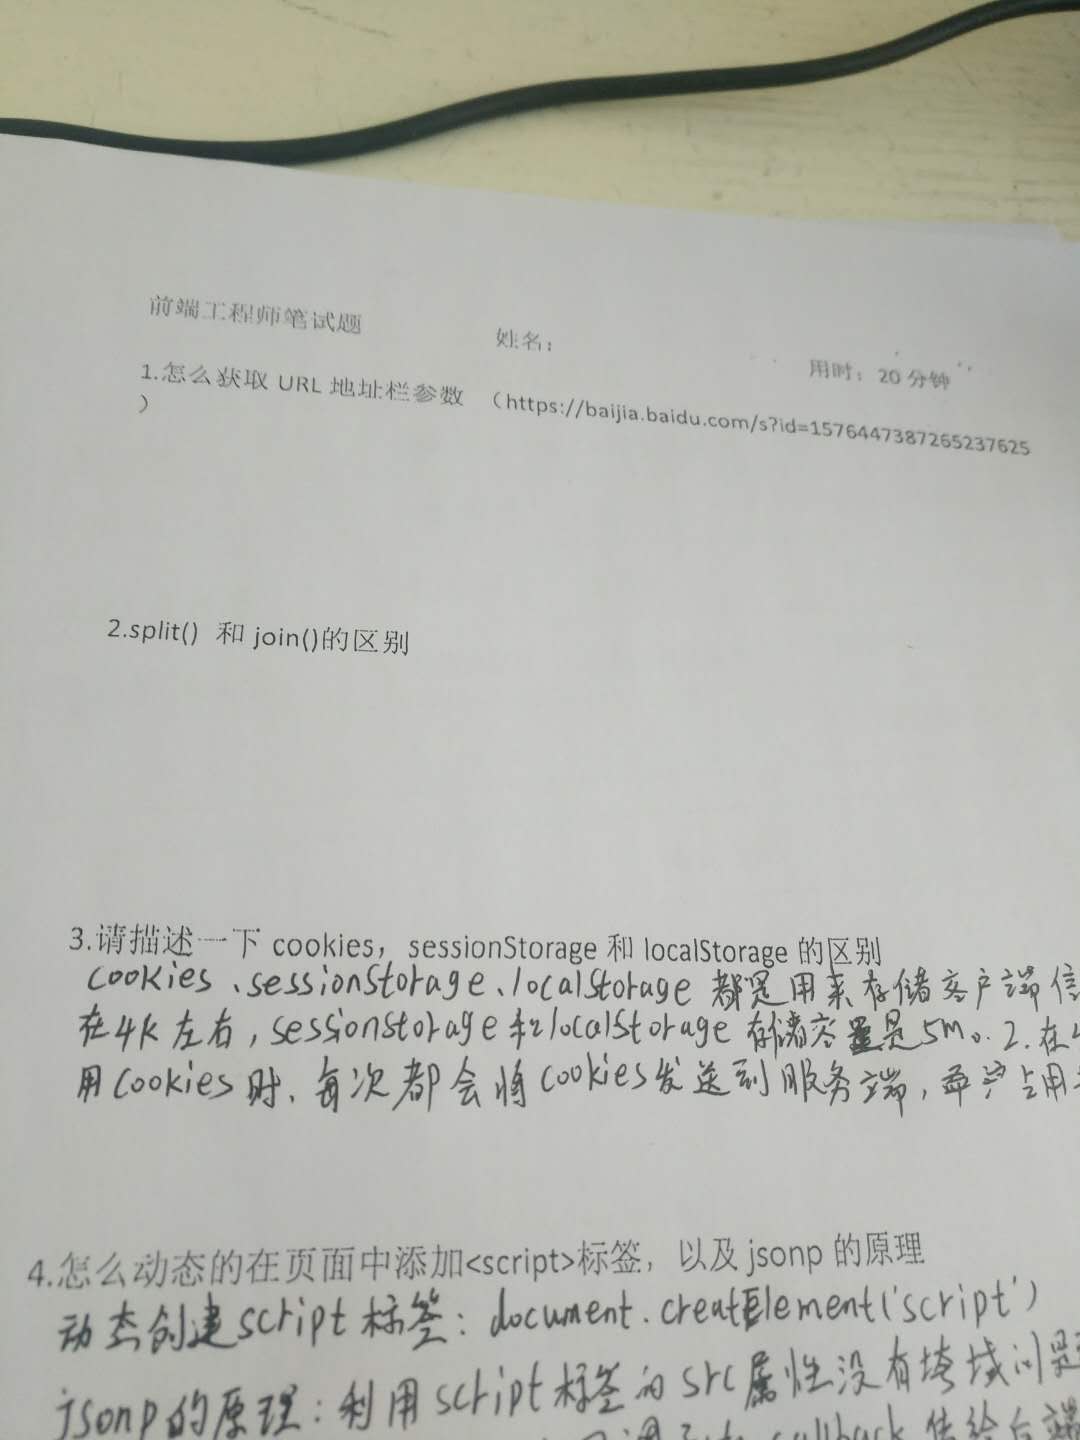 前端工程师笔试题 姓名： 用时：20 分钟
1.怎么获取 URL 地址栏参数 （https://baijia.baidu.com/s?id=1576447387265237625
）
2.split() 和 join()的区别
3.请描述一下 cookies，sessionStorage 和 localStorage 的区别
cookies、sessionStorage、localStorage 都是用来存储客户端信
在4K左右，sessionStorage和localStorage 存储容量是5M。2.在
用cookies时、每次都会将cookies发送到服务端，占用
4.怎么动态的在页面中添加<script>标签，以及 jsonp 的原理
动态创建script标签：document.createElement('script')
jsonp的原理：利用script标签的src属性没有垮域问题
callback 传给后端